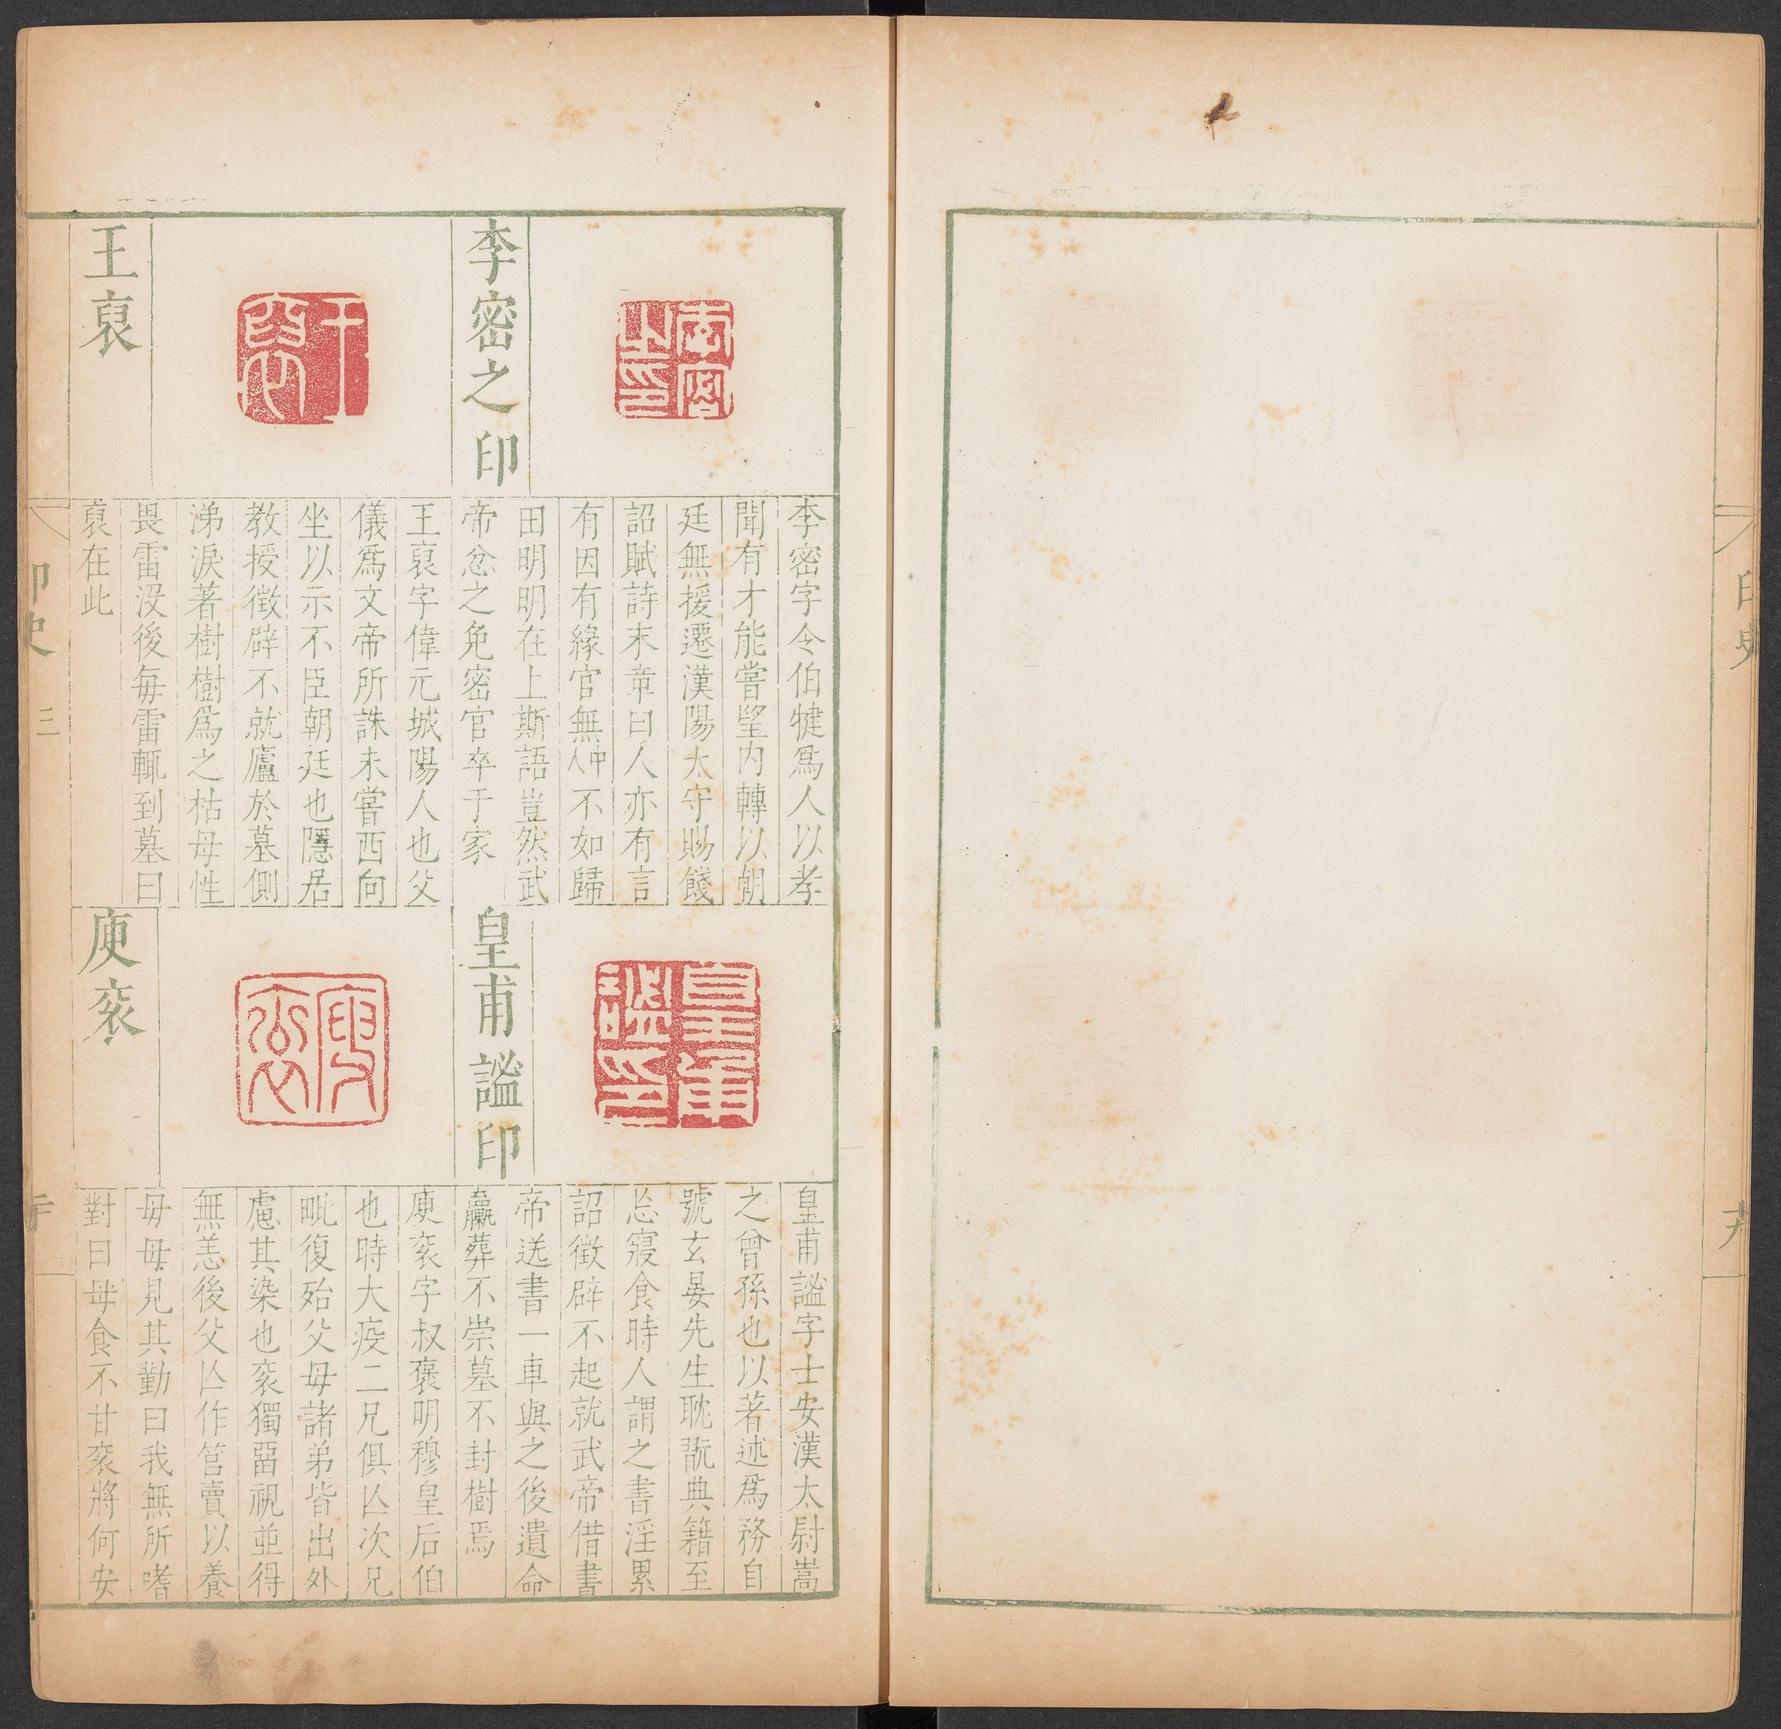 印史
李密之印
李密字令伯犍爲人以孝
聞有才能嘗望内轉以朝
廷無援遷漢陽太守賜餞
詔賦詩末章曰人亦有言
有因有緣官無中人不如歸
田明明在上斯語豈然武
帝忿之免密官卒于家
王裒
王裒字偉元城陽人也父
儀爲文帝所誅未嘗西向
坐以示不臣朝廷也隱居
教授徵辟不就廬於墓側
涕淚著樹樹爲之枯母性
畏雷没後每雷輒到墓曰
裒在此
皇甫謐印
皇甫謐字士安漢太尉嵩
之曾孫也以著述爲務自
號玄晏先生耽翫典籍至
忘寢食時人謂之書淫累
詔徵辟不起就武帝借書
帝送書一車與之後遺命
羸葬不崇墓不封樹焉
庾衮
庾衮字叔褒明穆皇后伯
也時大疫二兄俱亾次兄
毗復殆父母諸弟皆出外
慮其染也衮獨留視並得
無恙後父亾作筥賣以養
母母見其勤曰我無所嗜
對曰母食不甘衮將何安
印史
三